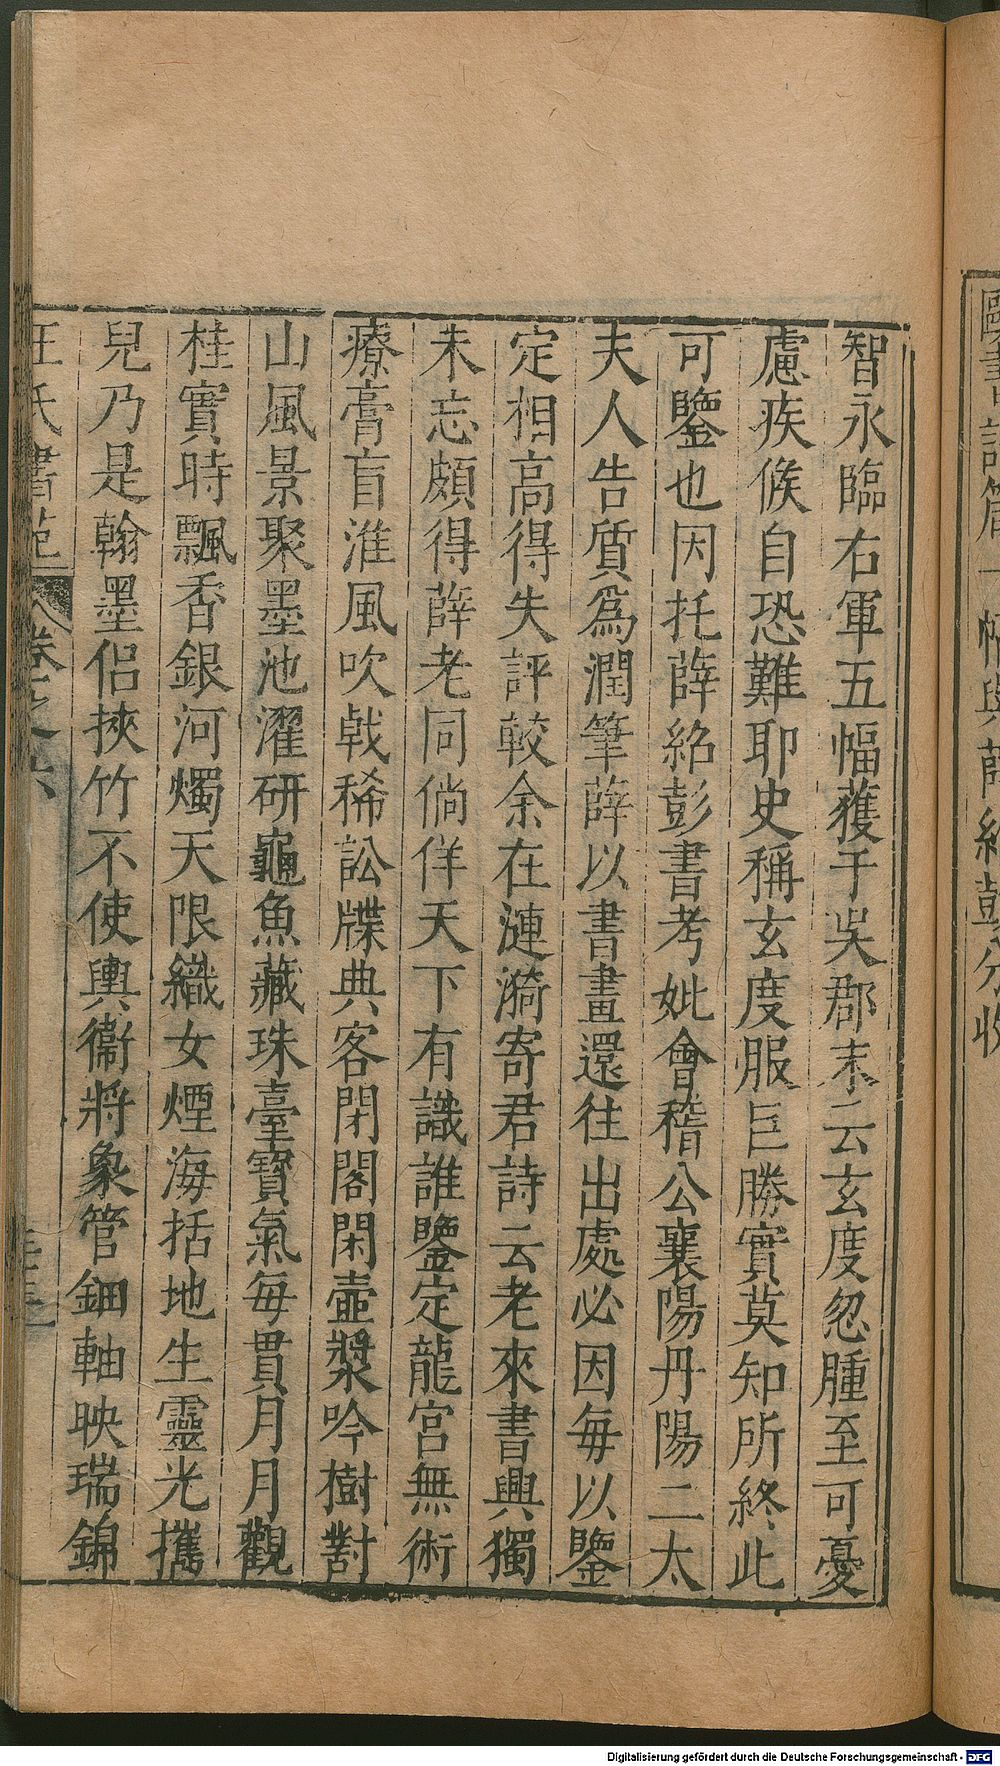 智永臨右軍五幅獲于吳郡末云玄度忽腫至可憂
慮疾候自恐難耶史稱玄度服巨勝實莫知所終此
可鑒也因托薛紹彭書考妣會稽公襄陽丹陽二太
夫人告質爲潤筆薛以書畫還往出處必因每以鑒
定相高得失評較余在漣漪寄君詩云老來書興獨
未忘頗得薛老同倘佯天下有識誰鑒定龍宮無術
療膏盲淮風吹戟稀訟牒典客閉閣閑壺漿吟樹對
山風景聚墨池濯研龜魚藏珠臺寶氣每貫月月觀
桂實時飄香銀河燭天限織女煙海括地生靈光攜
兒乃是翰墨侶挾竹不使輿衞將象管鈿軸映瑞錦
汪氏書苑 卷之六
Digitalisierung gefördert durch die Deutsche Forschungsgemeinschaft - DFG